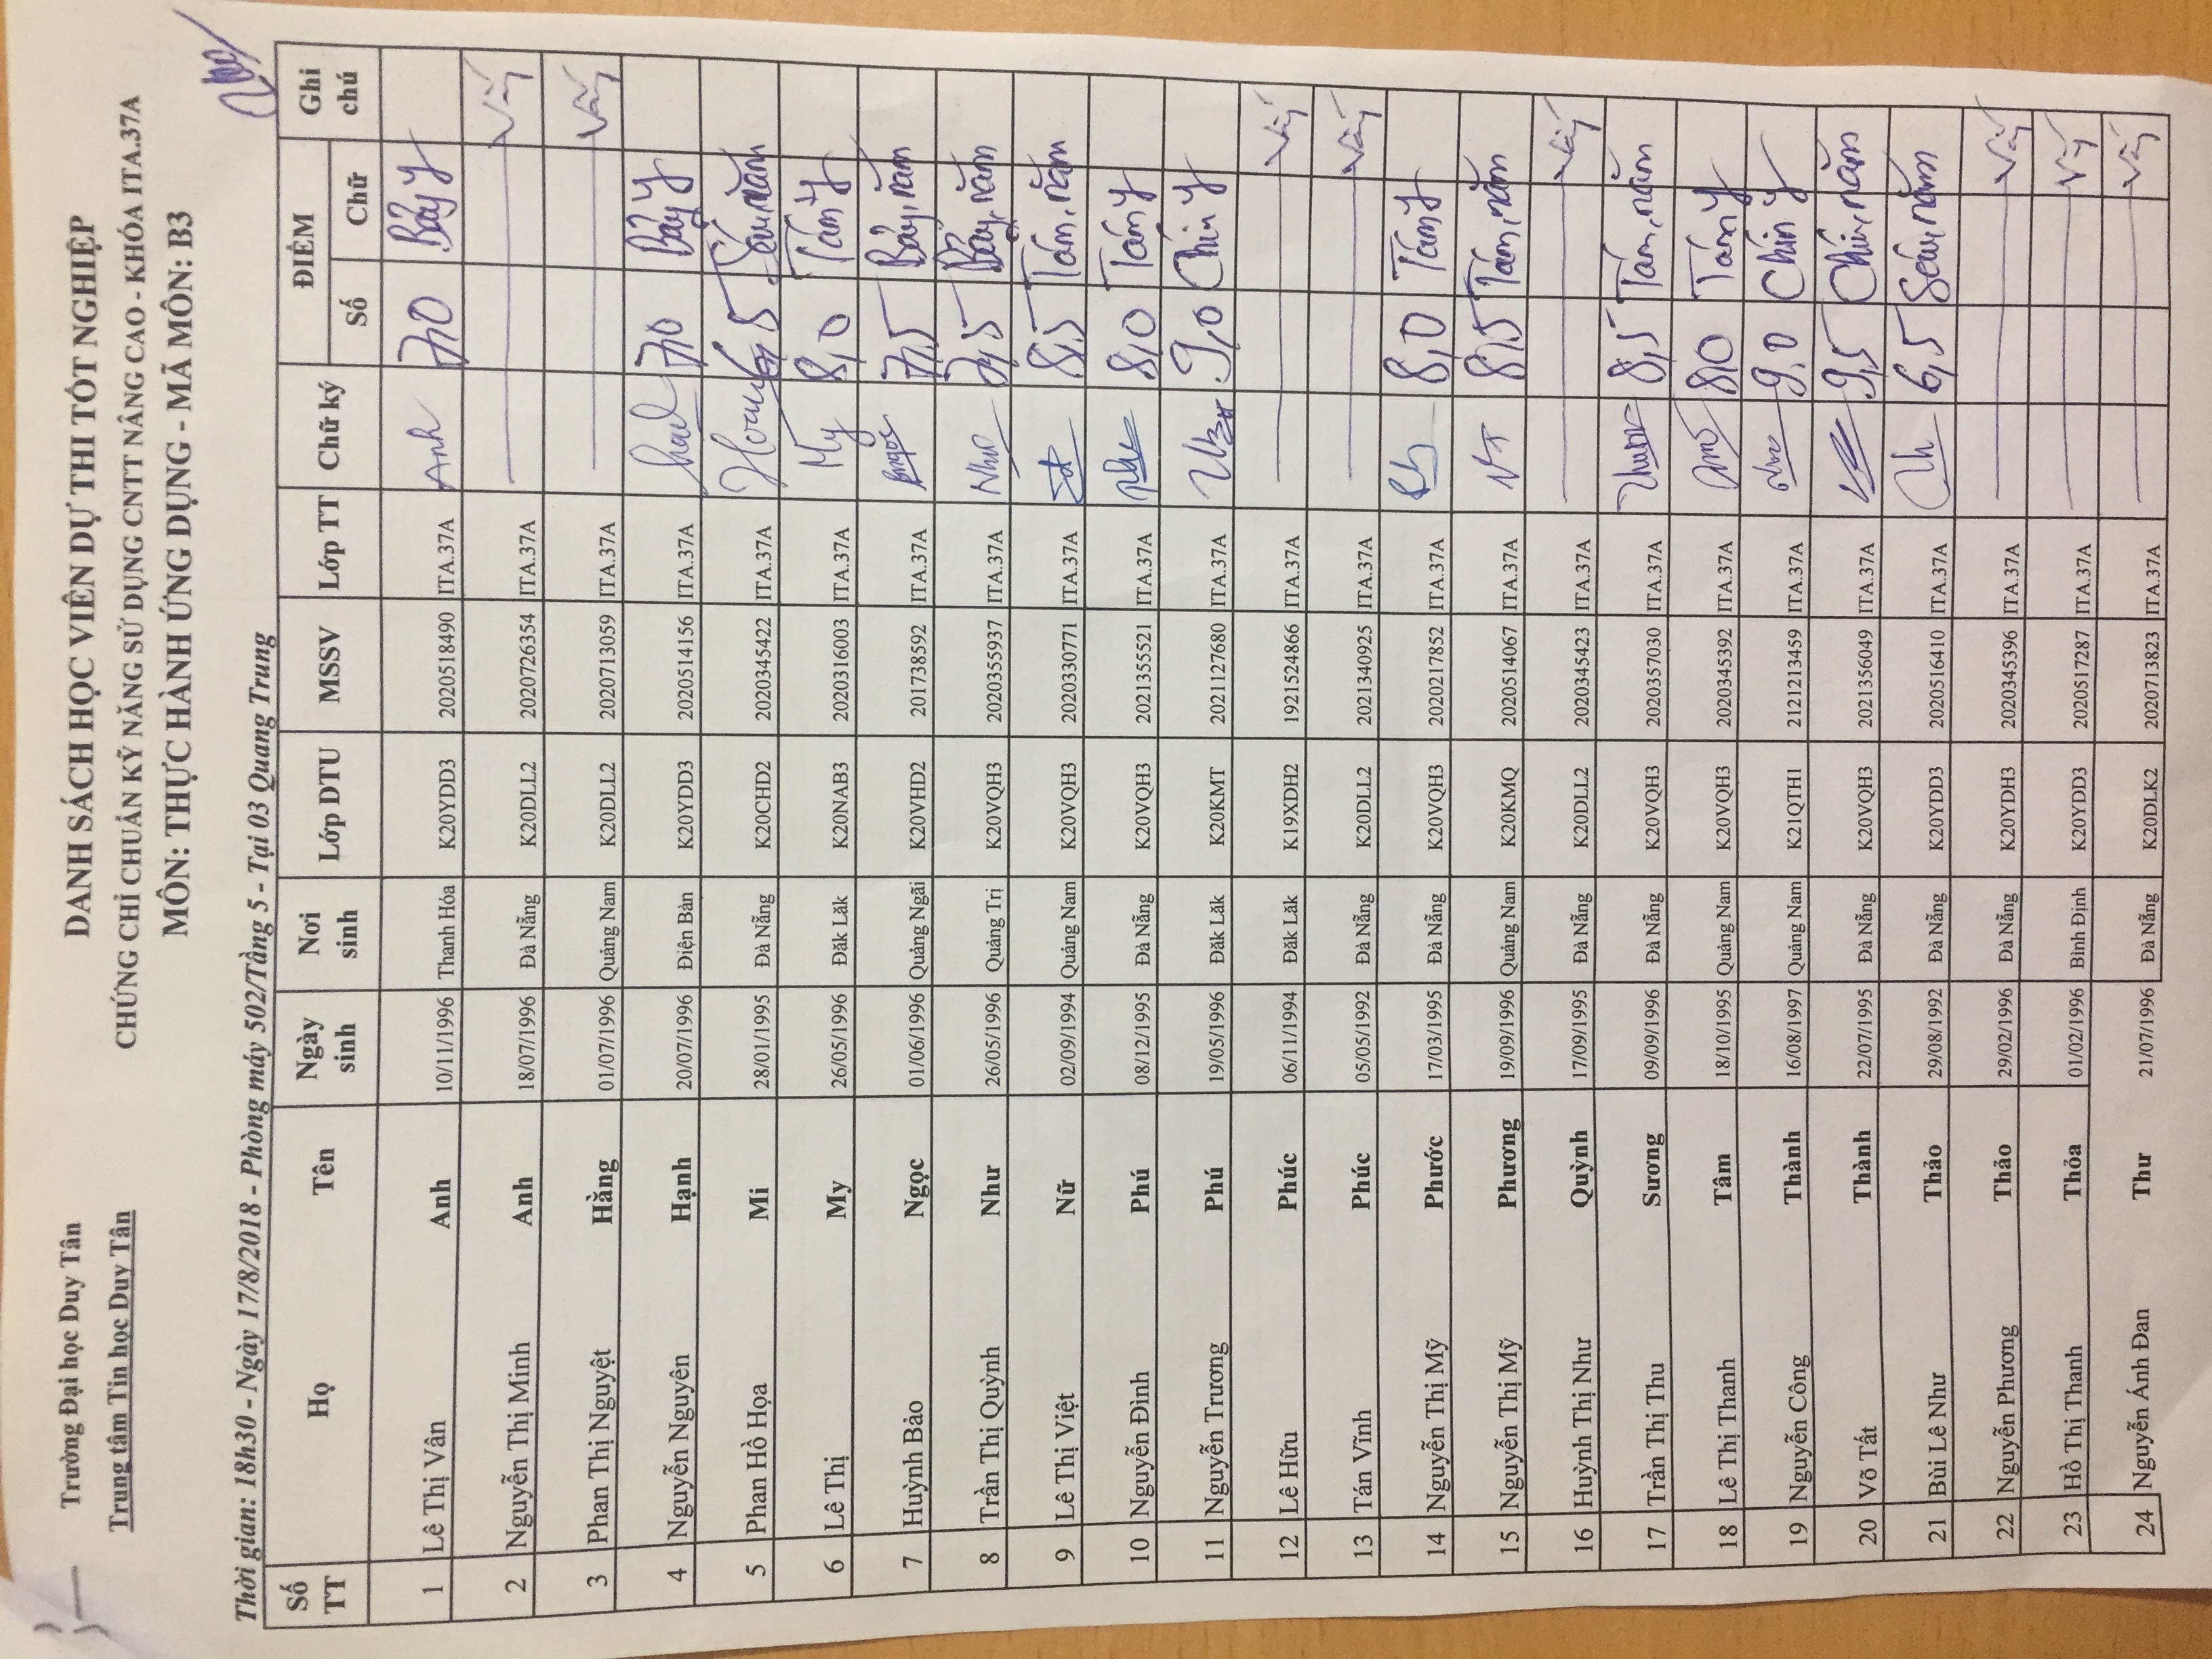 Trường Đại học Duy Tân
Trung tâm Tin học Duy Tân
DANH SÁCH HỌC VIÊN DỰ THI TỐT NGHIỆP
CHỨNG CHỈ CHUẨN KỸ NĂNG SỬ DỤNG CNTT NÂNG CAO - KHÓA ITA.37A
MÔN: THỰC HÀNH ỨNG DỤNG - MÃ MÔN: B3
Thời gian: 18h30 - Ngày 17/8/2018 - Phòng máy 502/Tầng 5 - Tại 03 Quang Trung
Số TT Họ Tên Ngày sinh Nơi sinh Lớp DTU MSSV Lớp TT Chữ ký ĐIỂM Số Chữ Ghi chú
1 Lê Thị Vân Anh 10/11/1996 Thanh Hóa K20YDD3 2020518490 ITA.37A Anh 7,0 Bảy
2 Nguyễn Thị Minh Anh 18/07/1996 Đà Nẵng K20DLL2 2020726354 ITA.37A Vắng
3 Phan Thị Nguyệt Hằng 01/07/1996 Quảng Nam K20DLL2 2020713059 ITA.37A Vắng
4 Nguyễn Nguyên Hạnh 20/07/1996 Điện Bàn K20YDD3 2020514156 ITA.37A 7,0 Bảy
5 Phan Hồ Họa Mi 28/01/1995 Đà Nẵng K20CHD2 2020345422 ITA.37A Sáu, năm
6 Lê Thị My 26/05/1996 Đăk Lăk K20NAB3 2020316003 ITA.37A My 8,0 Tám
7 Huỳnh Bảo Ngọc 01/06/1996 Quảng Ngãi K20VHD2 201738592 ITA.37A Ngọc 7,5 Bảy, năm
8 Trần Thị Quỳnh Như 26/05/1996 Quảng Trị K20VQH3 2020355937 ITA.37A Như 7,5 Bảy, năm
9 Lê Thị Việt Nữ 02/09/1994 Quảng Nam K20VQH3 2020330771 ITA.37A 8,5 Tám, năm
10 Nguyễn Đình Phú 08/12/1995 Đà Nẵng K20VQH3 2021355521 ITA.37A 8,0 Tám
11 Nguyễn Trương Phú 19/05/1996 Đăk Lăk K20KMT 2021127680 ITA.37A 9,0 Chín
12 Lê Hữu Phúc 06/11/1994 Đăk Lăk K19XDH2 1921524866 ITA.37A Vắng
13 Tán Vĩnh Phúc 05/05/1992 Đà Nẵng K20DLL2 2021340925 ITA.37A Vắng
14 Nguyễn Thị Mỹ Phước 17/03/1995 Đà Nẵng K20VQH3 2020217852 ITA.37A 8,0 Tám
15 Nguyễn Thị Mỹ Phương 19/09/1996 Quảng Nam K20KMQ 2020514067 ITA.37A 8,5 Tám, năm
16 Huỳnh Thị Như Quỳnh 17/09/1995 Đà Nẵng K20DLL2 2020345423 ITA.37A Vắng
17 Trần Thị Thu Sương 09/09/1996 Đà Nẵng K20VQH3 2020357030 ITA.37A 8,5 Tám, năm
18 Lê Thị Thanh Tâm 18/10/1995 Quảng Nam K20VQH3 2020345392 ITA.37A 8,0 Tám
19 Nguyễn Công Thành 16/08/1997 Quảng Nam K21QTH1 2121213459 ITA.37A 9,0 Chín
20 Võ Tất Thành 22/07/1995 Đà Nẵng K20VQH3 2021356049 ITA.37A 9,5 Chín, năm
21 Bùi Lê Như Thảo 29/08/1992 Đà Nẵng K20YDD3 2020516410 ITA.37A 6,5 Sáu, năm
22 Nguyễn Phương Thảo 29/02/1996 Đà Nẵng K20YDH3 2020345396 ITA.37A Vắng
23 Hồ Thị Thanh Thỏa 01/02/1996 Bình Định K20YDD3 2020517287 ITA.37A Vắng
24 Nguyễn Ánh Đan Thư 21/07/1996 Đà Nẵng K20DLK2 2020713823 ITA.37A Vắng